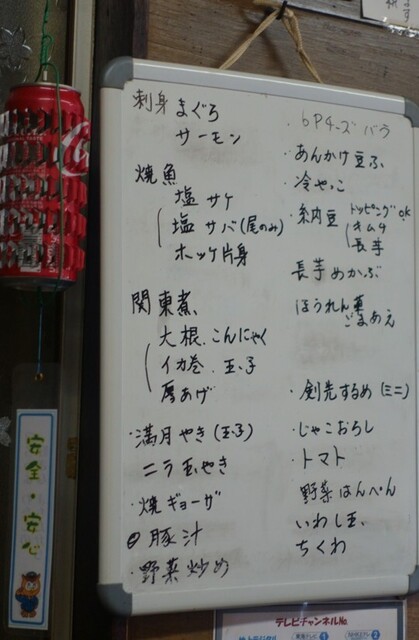 刺身 まぐろ
サーモン
焼魚
塩サケ
塩サバ(尾のみ)
ホッケ片身
関東煮
大根.こんにゃく
イカ巻.玉子
厚あげ
・満月やき(玉子)
ニラ玉やき
・焼ギョーザ
豚汁
・野菜炒め
・6Pチーズ バラ
・あんかけ豆ふ
・冷やっこ
・納豆 トッピングOK
キムチ
長芋
長芋めかぶ
ほうれん草
ごまあえ
・剣先するめ(ミニ)
・じゃこおろし
・トマト
野菜はんぺん
いわし玉
ちくわ
安全・安心
テレビチャンネルNo.